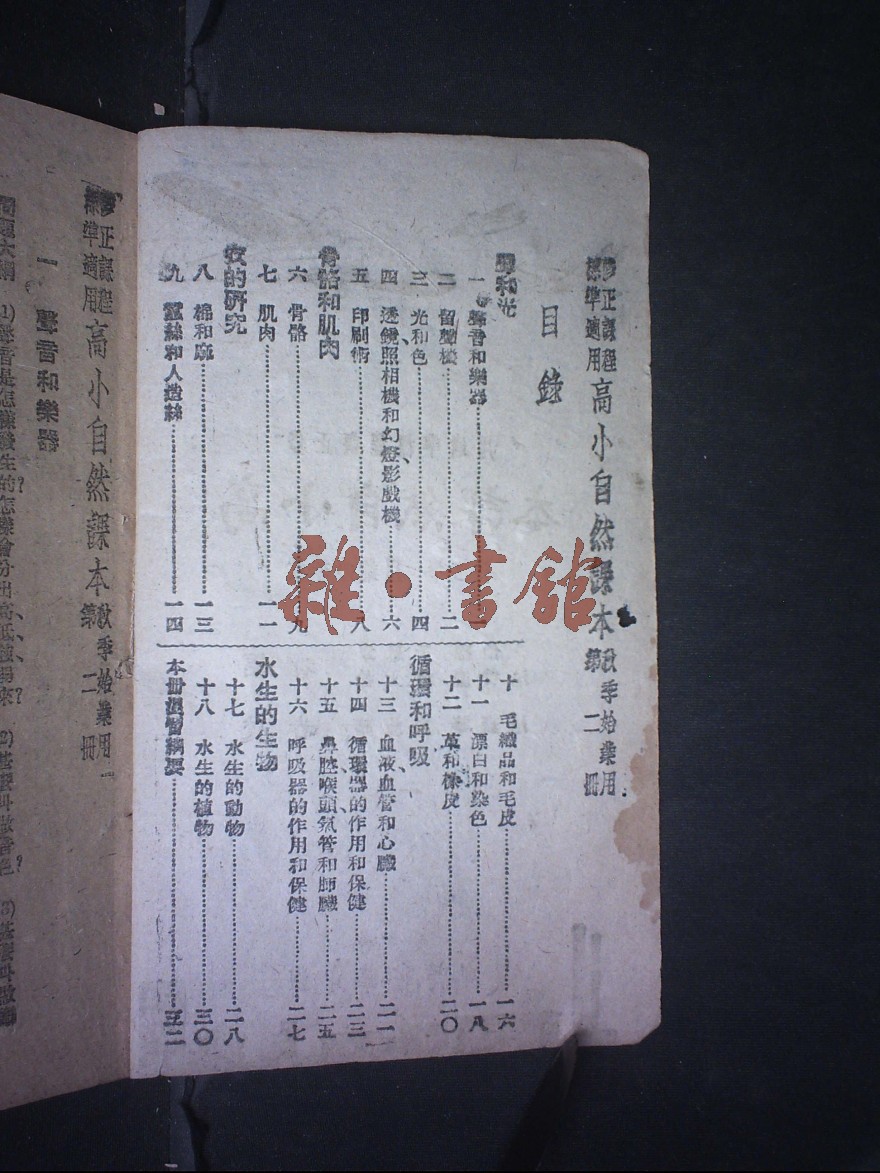 修正課程
標準適用
高小自然課本
秋季始業用
第二冊
目錄
聲和光
一 聲音和樂器
二 留聲機……二
三 光和色……四
四 透鏡、照相機和幻燈、影戲機……六
五 印刷術……八
骨骼和肌肉
六 骨骼……九
七 肌肉……一一
衣的研究
八 棉和麻……一三
九 蠶絲和人造絲……一四
十 毛織品和毛皮……一六
十一 漂白和染色……一八
十二 革和橡皮……二〇
循環和呼吸
十三 血液、血管和心臟……二一
十四 循環器的作用和保健……二三
十五 鼻腔、喉頭、氣管和肺臟……二五
十六 呼吸器的作用和保健……二七
水生的生物
十七 水生的動物……二八
十八 水生的植物……三〇
本冊溫習綱要……三二
雜·書館
修正課程
標準適用
高小自然課本
秋季始業用
第二冊
一 聲音和樂器
問題大綱 (1)聲音是怎樣發生的?怎樣會分出高、低、強、弱來? (2)